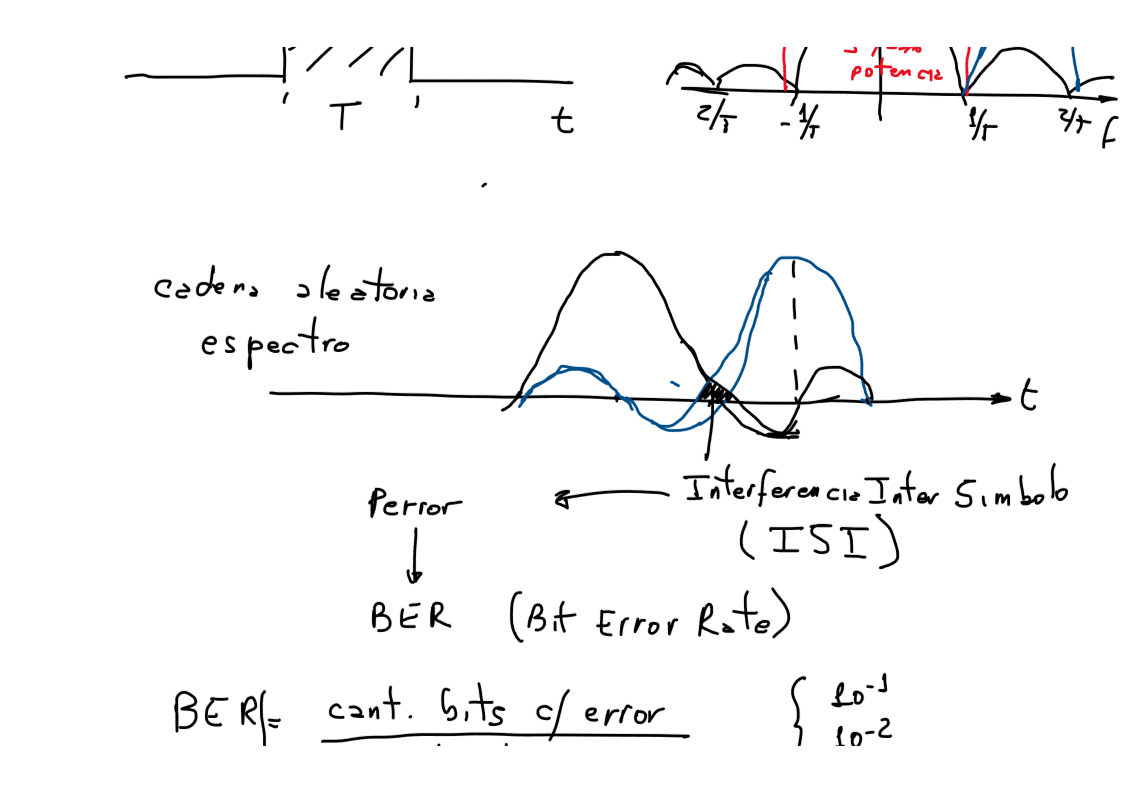 potencia
T
t
2/T
- 1/T
1/T
2/T
f
cadena aleatoria
espectro
t
Perror
Interferencia Inter Simbolo
(ISI)
BER (Bit Error Rate)
BER = cant. bits c/ error
{ 10-1
10-2